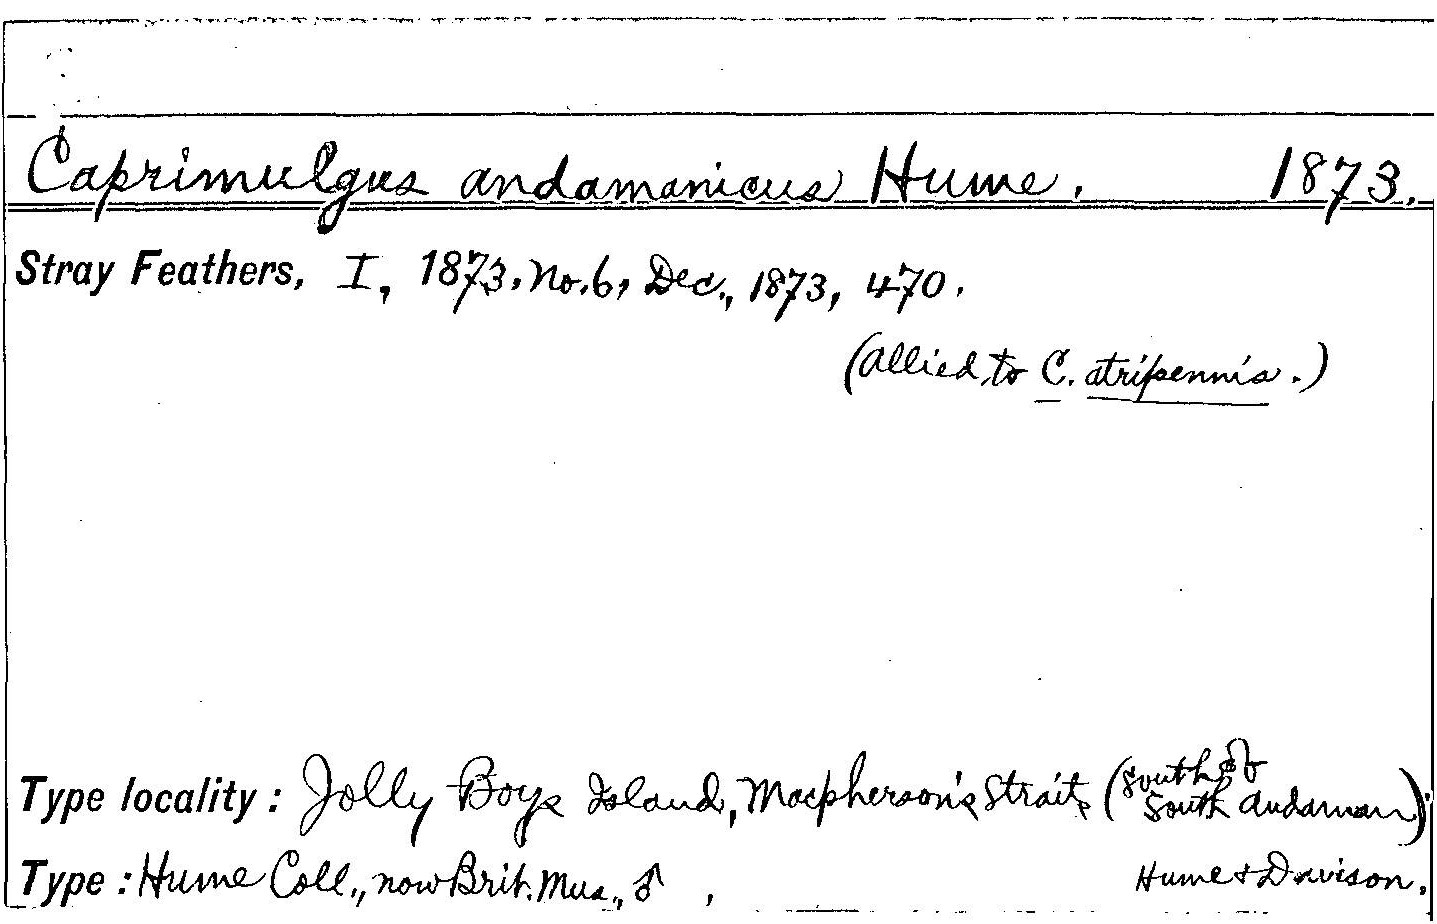 Caprimulgus andamanicus Hume. 1873.
Stray Feathers, I, 1873, No. 6, Dec., 1873, 470.
(Allied to C. atripennis.)
Type locality: Jolly Boys Island, Macpherson's Straits (south of South Andaman)
Type: Hume Coll., now Brit. Mus., ♂, Hume & Davison.